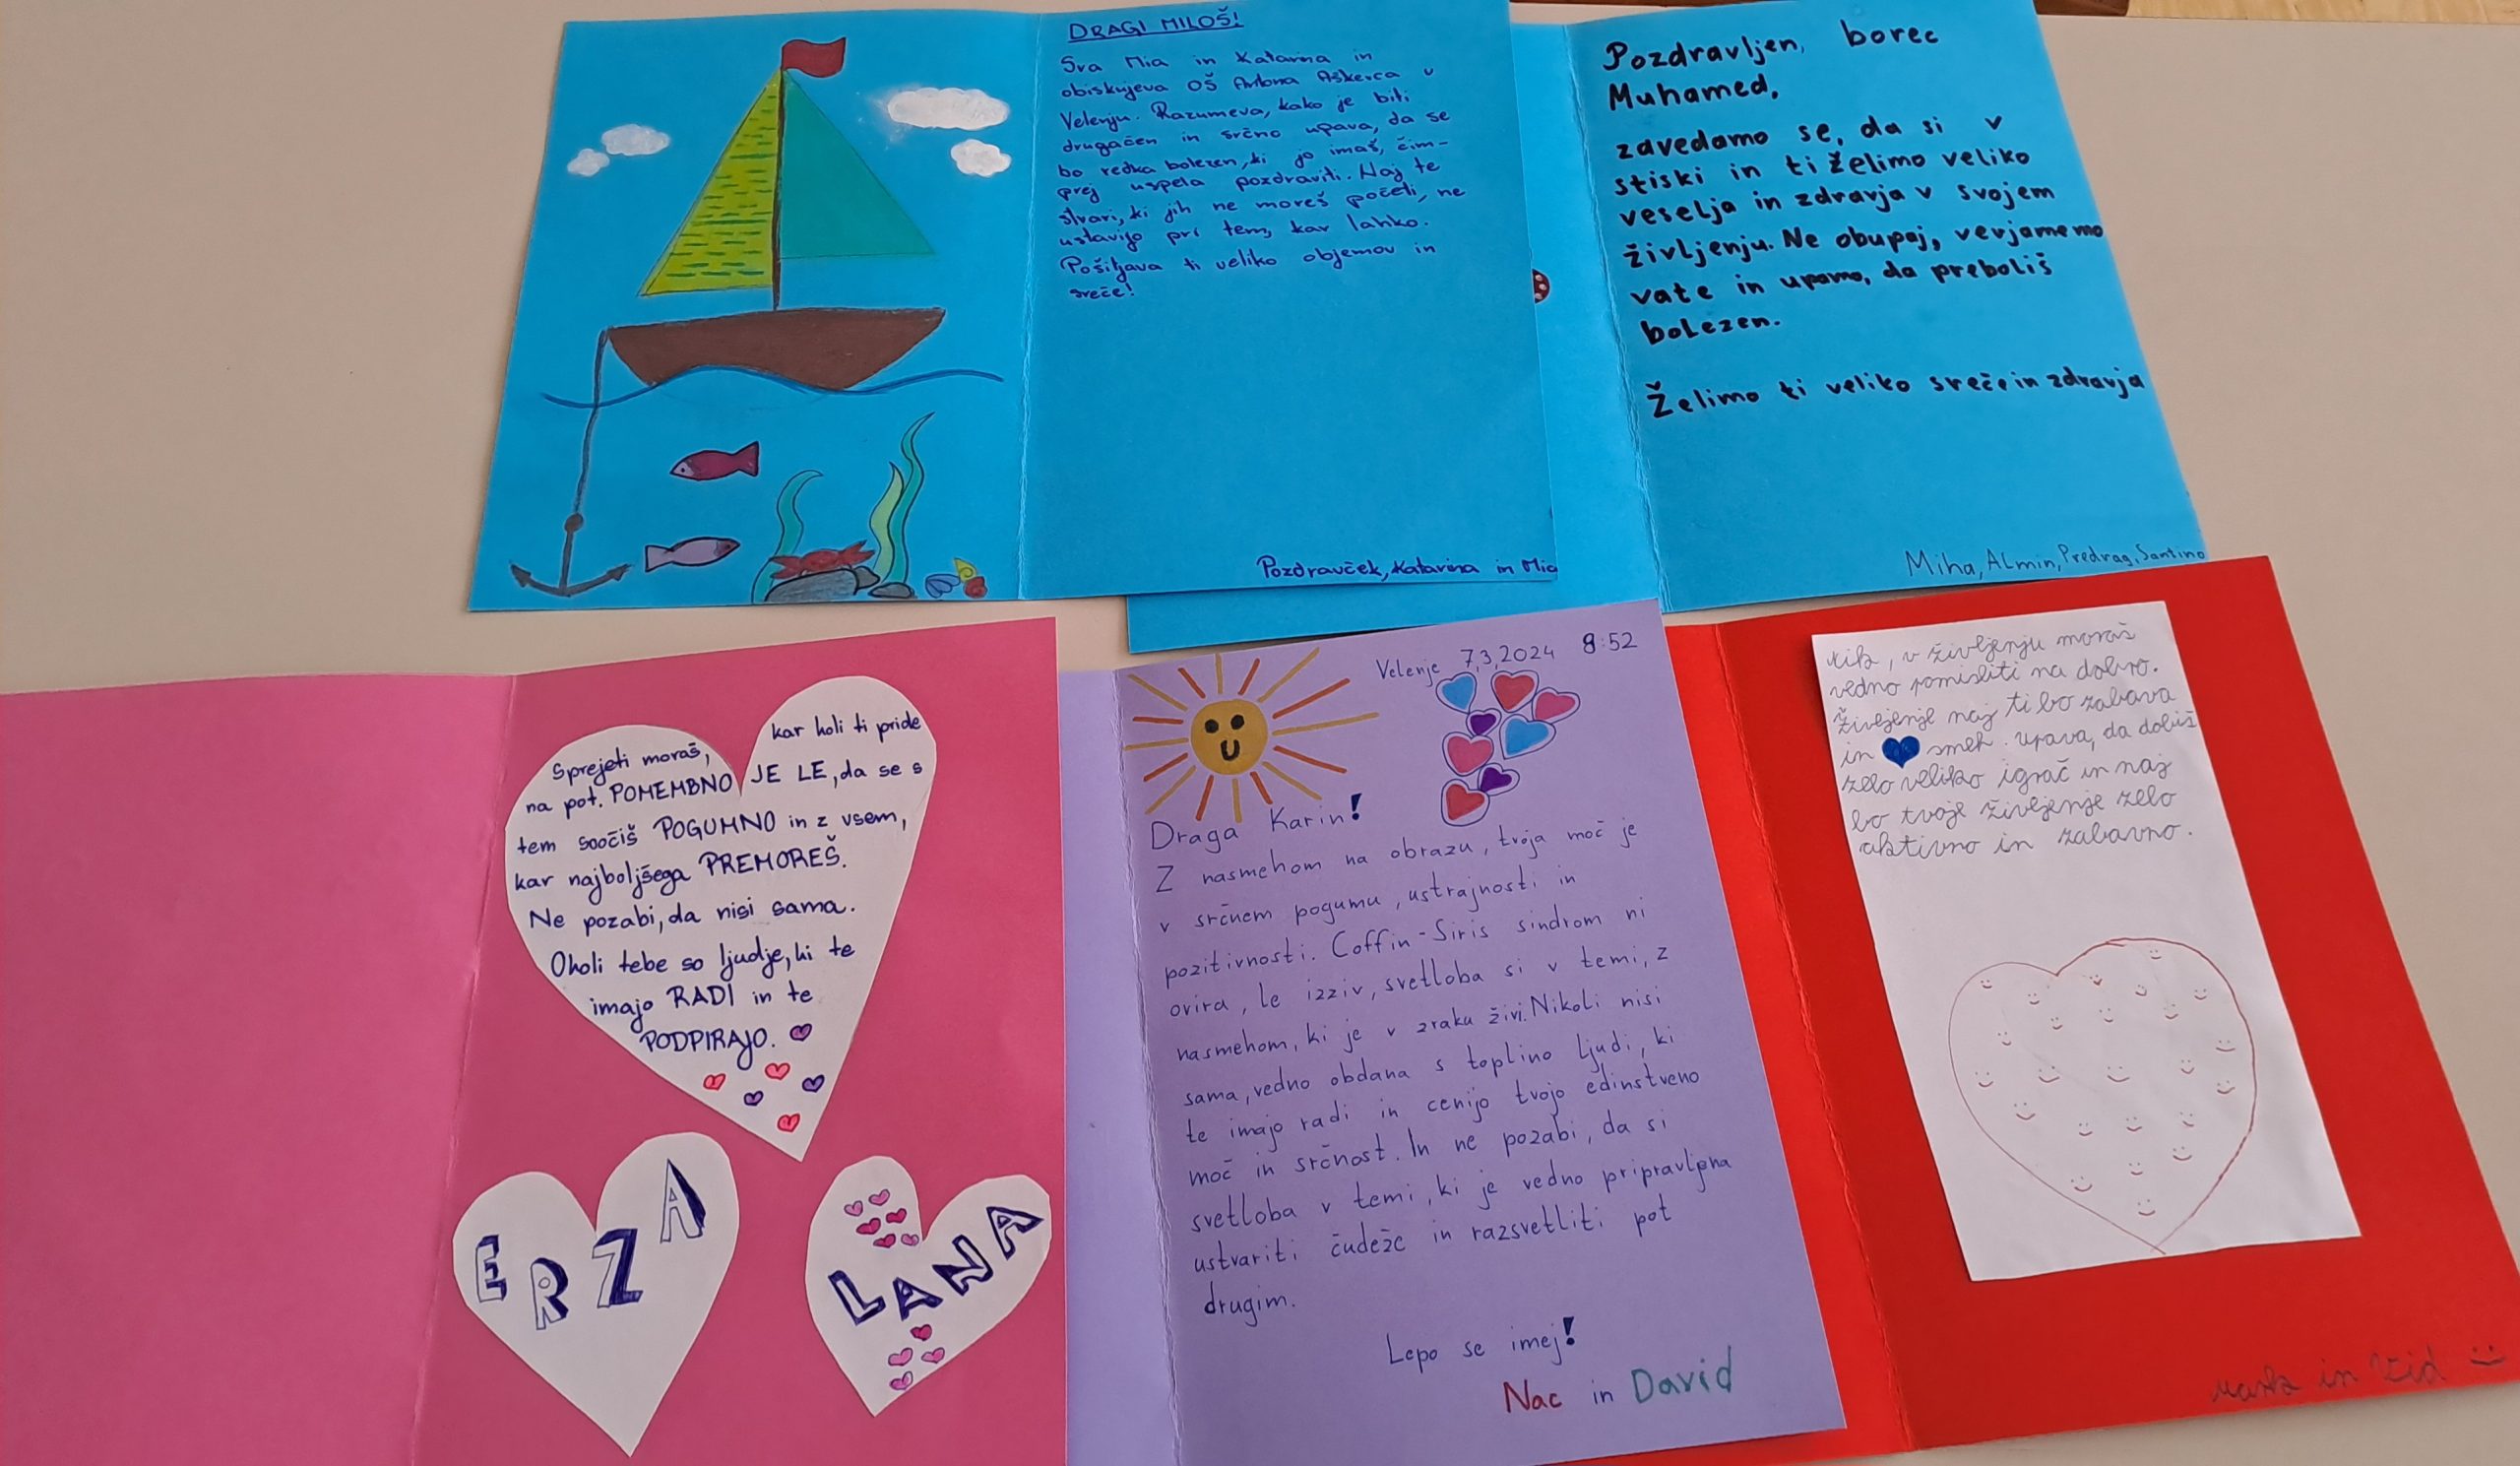 DRAGI MILOŠ!
Sva Mia in Katarina in
obiskujeva OŠ Antona Aškerca v
Velenju. Razumeva, kako je biti
drugačen in srčno upava, da se
bo redka bolezen, ki jo imaš, čim-
prej uspela pozdraviti. Naj te
stvari, ki jih ne moreš početi, ne
ustavijo pri tem, kar lahko.
Pošiljava ti veliko objemov in
sreče!
Pozdravček, Katarina in Mia
Pozdravljen, borec
Muhamed,
zavedamo se, da si v
stiski in ti želimo veliko
veselja in zdravja v svojem
življenju. Ne obupaj, verjamemo
vate in upamo, da preboliš
bolezen.
Želimo ti veliko sreče in zdravja
Miha, Almin, Predrag, Santino
Sprejeti moraš, kar koli ti pride
na pot. POMEMBNO JE LE, da se s
tem soočiš POGUMNO in z vsem,
kar najboljšega PREMOREŠ.
Ne pozabi, da nisi sama.
Okoli tebe so ljudje, ki te
imajo RADI in te
PODPIRAJO.
ERZA
LANA
Velenje 7,3,2024 8:52
Draga Karin!
Z nasmehom na obrazu, tvoja moč je
v srčnem pogumu, ustrajnosti in
pozitivnosti. Coffin-Siris sindrom ni
ovira, le izziv, svetloba si v temi, z
nasmehom, ki je v zraku živi. Nikoli nisi
sama, vedno obdana s toplino ljudi, ki
te imajo radi in cenijo tvojo edinstveno
moč in srčnost. In ne pozabi, da si
svetloba v temi, ki je vedno pripravljena
ustvariti čudeže in razsvetliti pot
drugim.
Lepo se imej!
Nac in David
, v življenju moraš
vedno pomisliti na dobro.
Življenje naj ti bo zabava
in smeh. Upava, da dobiš
zelo veliko igrač in naj
bo tvoje življenje zelo
aktivno in zabavno.
in Vid